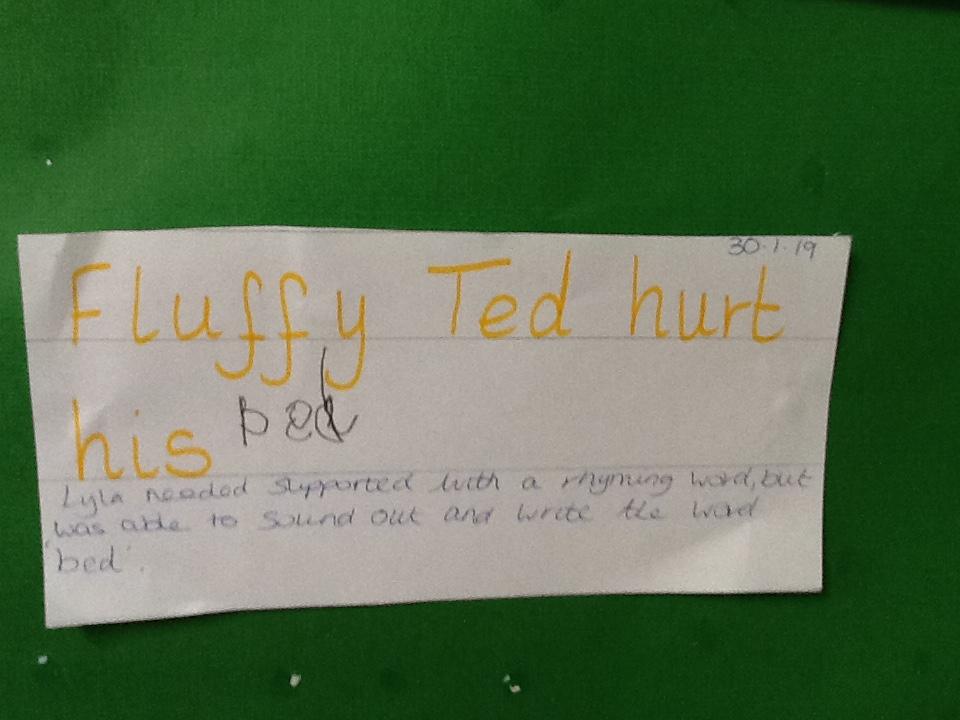 30.1.19
Fluffy Ted hurt
his bed
Lyla needed supported with a rhyming word, but
was able to sound out and write the word
'bed'.